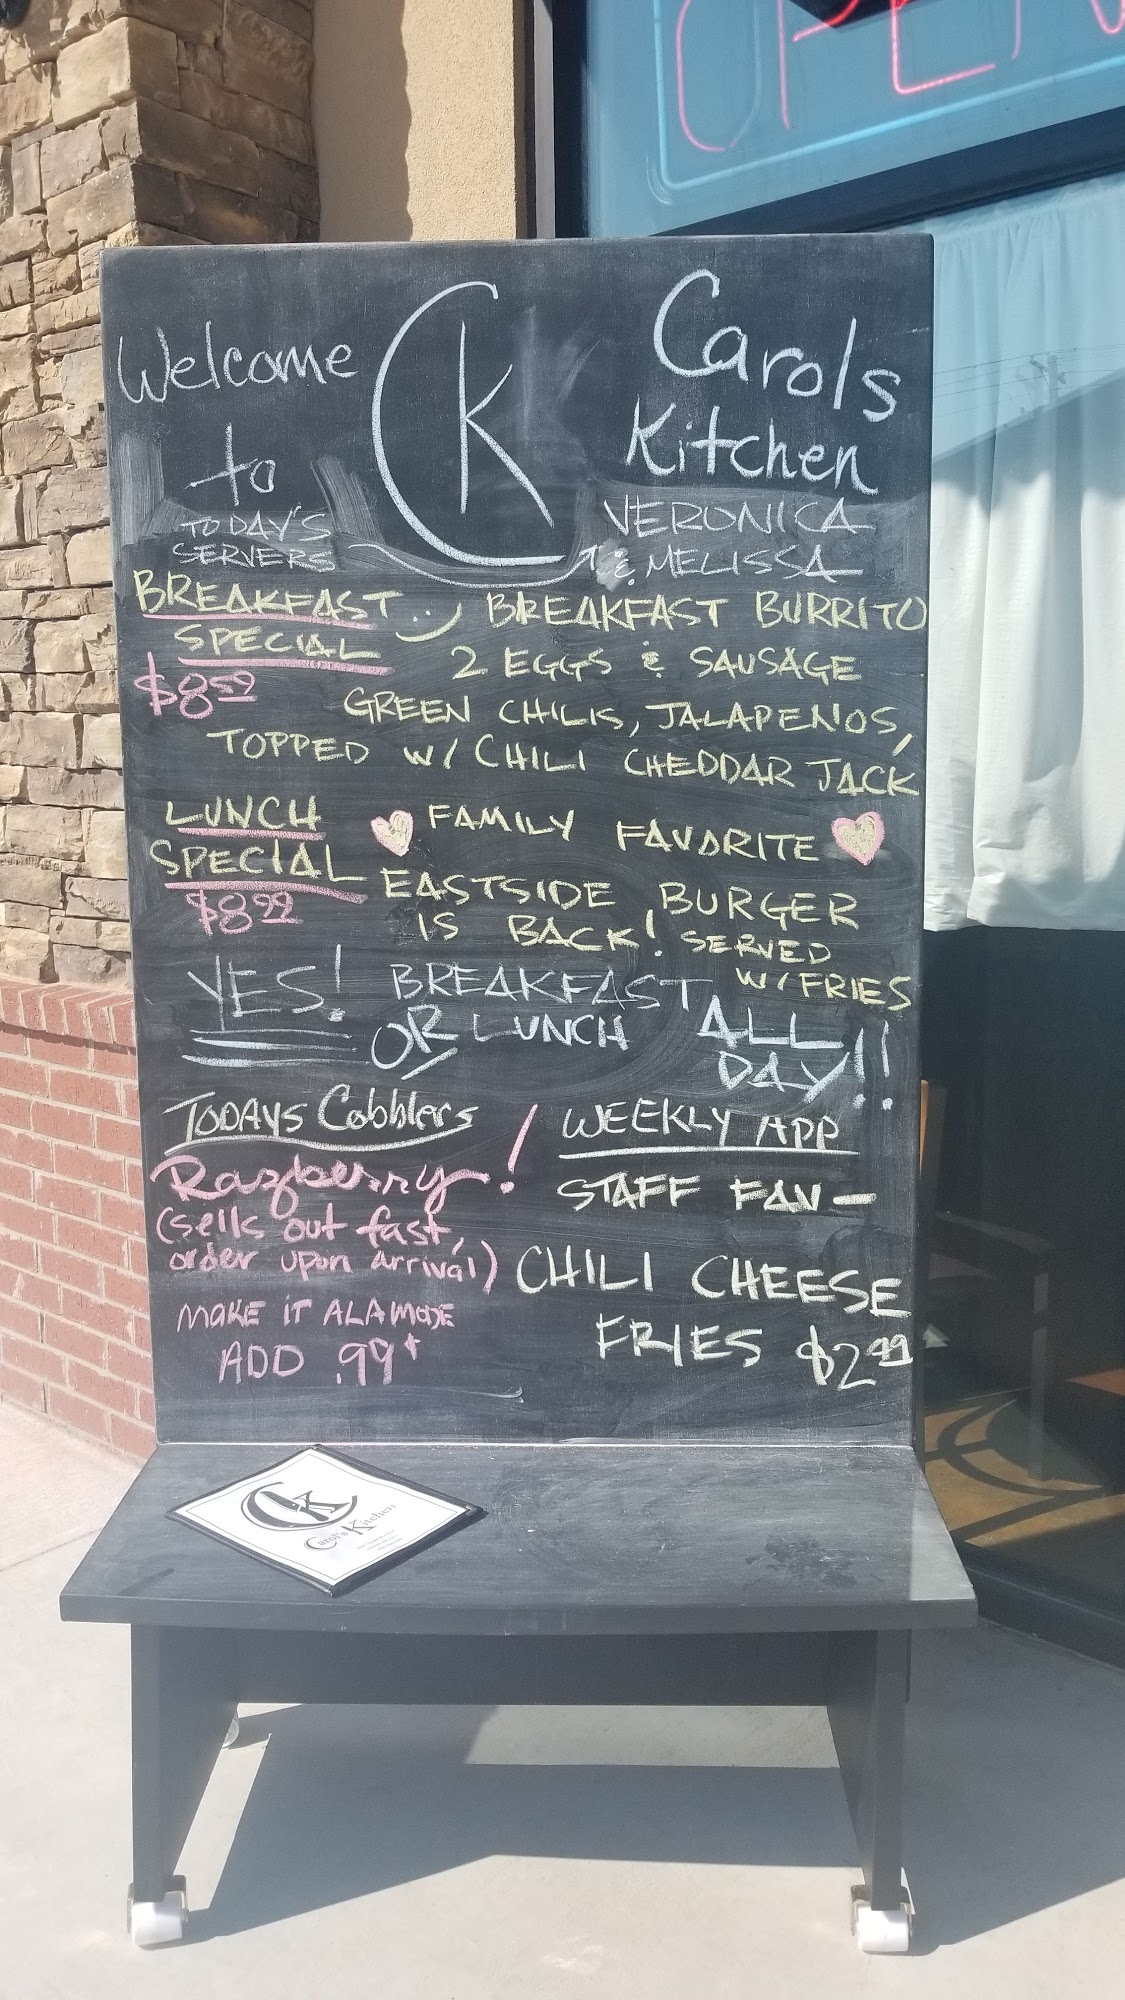 OPEN
Welcome to
CK
Carols
Kitchen
TODAY'S
SERVERS
VERONICA
& MELISSA
BREAKFAST
SPECIAL
$8.59
BREAKFAST BURRITO
2 EGGS & SAUSAGE
GREEN CHILIS, JALAPENOS,
TOPPED W/ CHILI CHEDDAR JACK
LUNCH
SPECIAL
$8.99
FAMILY FAVORITE
EASTSIDE BURGER
IS BACK! SERVED
W/ FRIES
YES! BREAKFAST
OR LUNCH ALL
DAY!!
TODAYS Cobblers
Razberry!
(sells out fast,
order upon arrival)
MAKE IT ALAMODE
ADD .99¢
WEEKLY APP
STAFF FAV-
CHILI CHEESE
FRIES $2.99
CK
Carol's Kitchen